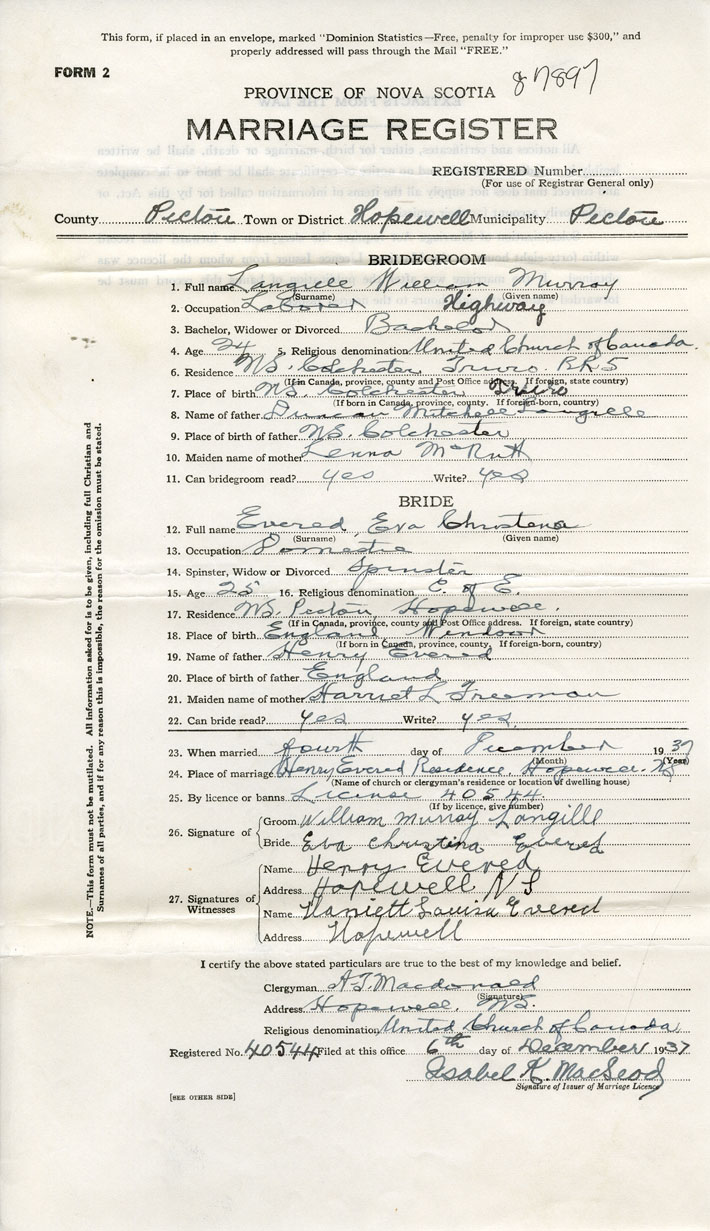 This form, if placed in an envelope, marked "Dominion Statistics—Free, penalty for improper use $300," and
properly addressed will pass through the Mail "FREE."
FORM 2
87897
PROVINCE OF NOVA SCOTIA
MARRIAGE REGISTER
REGISTERED Number
(For use of Registrar General only)
County Pictou Town or District Hopewell Municipality Pictou
BRIDEGROOM
1. Full name Langille William Murray
(Surname) (Given name)
2. Occupation Laborer Highway
3. Bachelor, Widower or Divorced Bachelor
4. Age 24 5. Religious denomination United Church of Canada.
6. Residence N.S. Colchester, Truro R.R.5
(If in Canada, province, county and Post Office address. If foreign, state country)
7. Place of birth N.S. Colchester Truro
(If born in Canada, province, county. If foreign-born, country)
8. Name of father Duncan Mitchell Langille
9. Place of birth of father N.S. Colchester
10. Maiden name of mother Lenna McNutt
11. Can bridegroom read? yes Write? yes
BRIDE
12. Full name Evered, Eva Christena
(Surname) (Given name)
13. Occupation Domestic
14. Spinster, Widow or Divorced Spinster
15. Age 25 16. Religious denomination C. of E.
17. Residence N.S. Pictou Hopewell.
(If in Canada, province, county and Post Office address. If foreign, state country)
18. Place of birth England Windsor
(If born in Canada, province, county. If foreign-born, country)
19. Name of father Henry Evered
20. Place of birth of father England
21. Maiden name of mother Harriet L Freeman
22. Can bride read? yes Write? yes
23. When married fourth day of December 1937
(Month) (Year)
24. Place of marriage Henry Evered Residence, Hopewell. NS
(Name of church or clergyman's residence or location of dwelling house)
25. By licence or banns License 40544
(If by licence, give number)
26. Signature of
Groom William Murray Langille
Bride Eva Christina Evered
27. Signatures of Witnesses
Name Henry Evered
Address Hopewell N S
Name Harriett Louisa Evered
Address Hopewell
I certify the above stated particulars are true to the best of my knowledge and belief.
Clergyman A.T. Macdonald
(Signature)
Address Hopewell, N.S.
Religious denomination United Church of Canada
Registered No. 40544 Filed at this office 6th day of December 1937
Isabel K. MacLeod
Signature of Issuer of Marriage Licence
[SEE OTHER SIDE]
NOTE.—This form must not be mutilated. All information asked for is to be given, including full Christian and
Surnames of all parties, and if for any reason this is impossible, the reason for the omission must be stated.